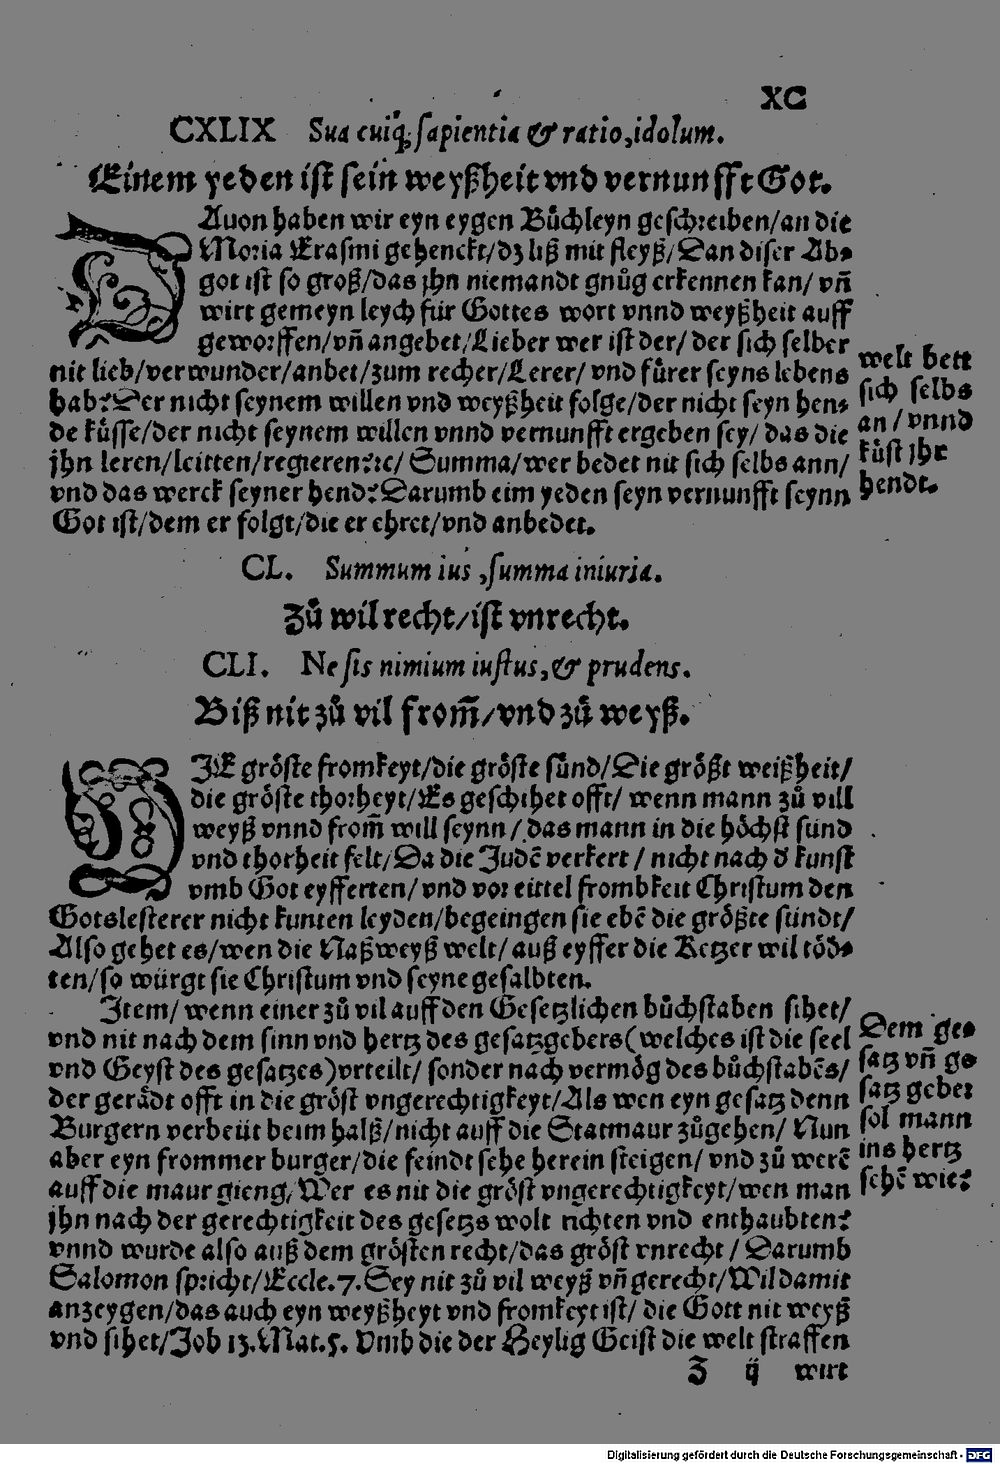 XC
CXLIX Sua cuiq; sapientia & ratio, idolum.
Einem yeden ist sein weyßheit vnd vernunfft Got.
DAuon haben wir eyn eygen Bůchleyn geschreiben/an die
Moria Erasmi gehenckt/dz liß mit fleyß/Dan diser Ab⸗
got ist so groß/das jhn niemandt gnůg erkennen kan/ vn̄
wirt gemeyn leych für Gottes wort vnnd weyßheit auff
geworffen/vn̄ angebet/Lieber wer ist der/ der sich selber
nit lieb/verwunder/anbet/zum recher/Lerer/ vnd fürer seyns lebens
hab? Der nicht seynem willen vnd weyßheit folge/der nicht seyn hen⸗
de küsse/der nicht seynem willen vnnd vernunfft ergeben sey/ das die
jhn leren/leitten/regieren?ꝛc/ Summa/wer bedet nit sich selbs ann/
vnd das werck seyner hend? Darumb eim yeden seyn vernunfft seynn
Got ist/dem er folgt/die er ehret/vnd anbedet.
welt bett
sich selbs
an/ vnnd
küst jhr
hendt.
CL. Summum ius, summa iniuria.
Zů wil recht/ist vnrecht.
CLI. Ne sis nimium iustus, & prudens.
Biß nit zů vil from̄/vnd zů weyß.
DIE gröste fromkeyt/die gröste sünd/Die größt weißheit/
die gröste thorheyt/Es geschihet offt/ wenn mann zů vill
weyß vnnd from̄ will seynn/ das mann in die höchst sünd
vnd thorheit felt/Da die Judē verkert/ nicht nach d' kunst
vmb Got eyfferten/ vnd vor eittel frombkeit Christum den
Gotslesterer nicht kunten leyden/begeingen sie ebē die größte sündt/
Also gehet es/wen die Naßweyß welt/ auß eyffer die Ketzer wil töd⸗
ten/so würgt sie Christum vnd seyne gesalbten.
Item/ wenn einer zů vil auff den Gesetzlichen bůchstaben sihet/
vnd nit nach dem sinn vnd hertz des gesatzgebers(welches ist die seel
vnd Geyst des gesatzes)vrteilt/ sonder nach vermög des bůchstabēs/
der gerädt offt in die gröst vngerechtigkeyt/Als wen eyn gesatz denn
Burgern verbeüt beim halß/nicht auff die Statmaur zůgehen/ Nun
aber eyn frommer burger/die feindt sehe herein steigen/ vnd zů werē
auff die maur gieng/Wer es nit die gröst vngerechtigkeyt/wen man
jhn nach der gerechtigkeit des gesetzs wolt richten vnd enthaubten?
vnnd wurde also auß dem grösten recht/das gröst vnrecht/ Darumb
Salomon spricht/Eccle.7.Sey nit zů vil weyß vn̄ gerecht/Wil damit
anzeygen/das auch eyn weyßheyt vnd fromkeyt ist/ die Gott nit weyß
vnd sihet/Job 13.Mat.5. Vmb die der Heylig Geist die welt straffen
Dem ge⸗
satz vn̄ ge
satz geber
sol mann
ins hertz
sehē wie?
Z ij wirt
Digitalisierung gefördert durch die Deutsche Forschungsgemeinschaft - DFG